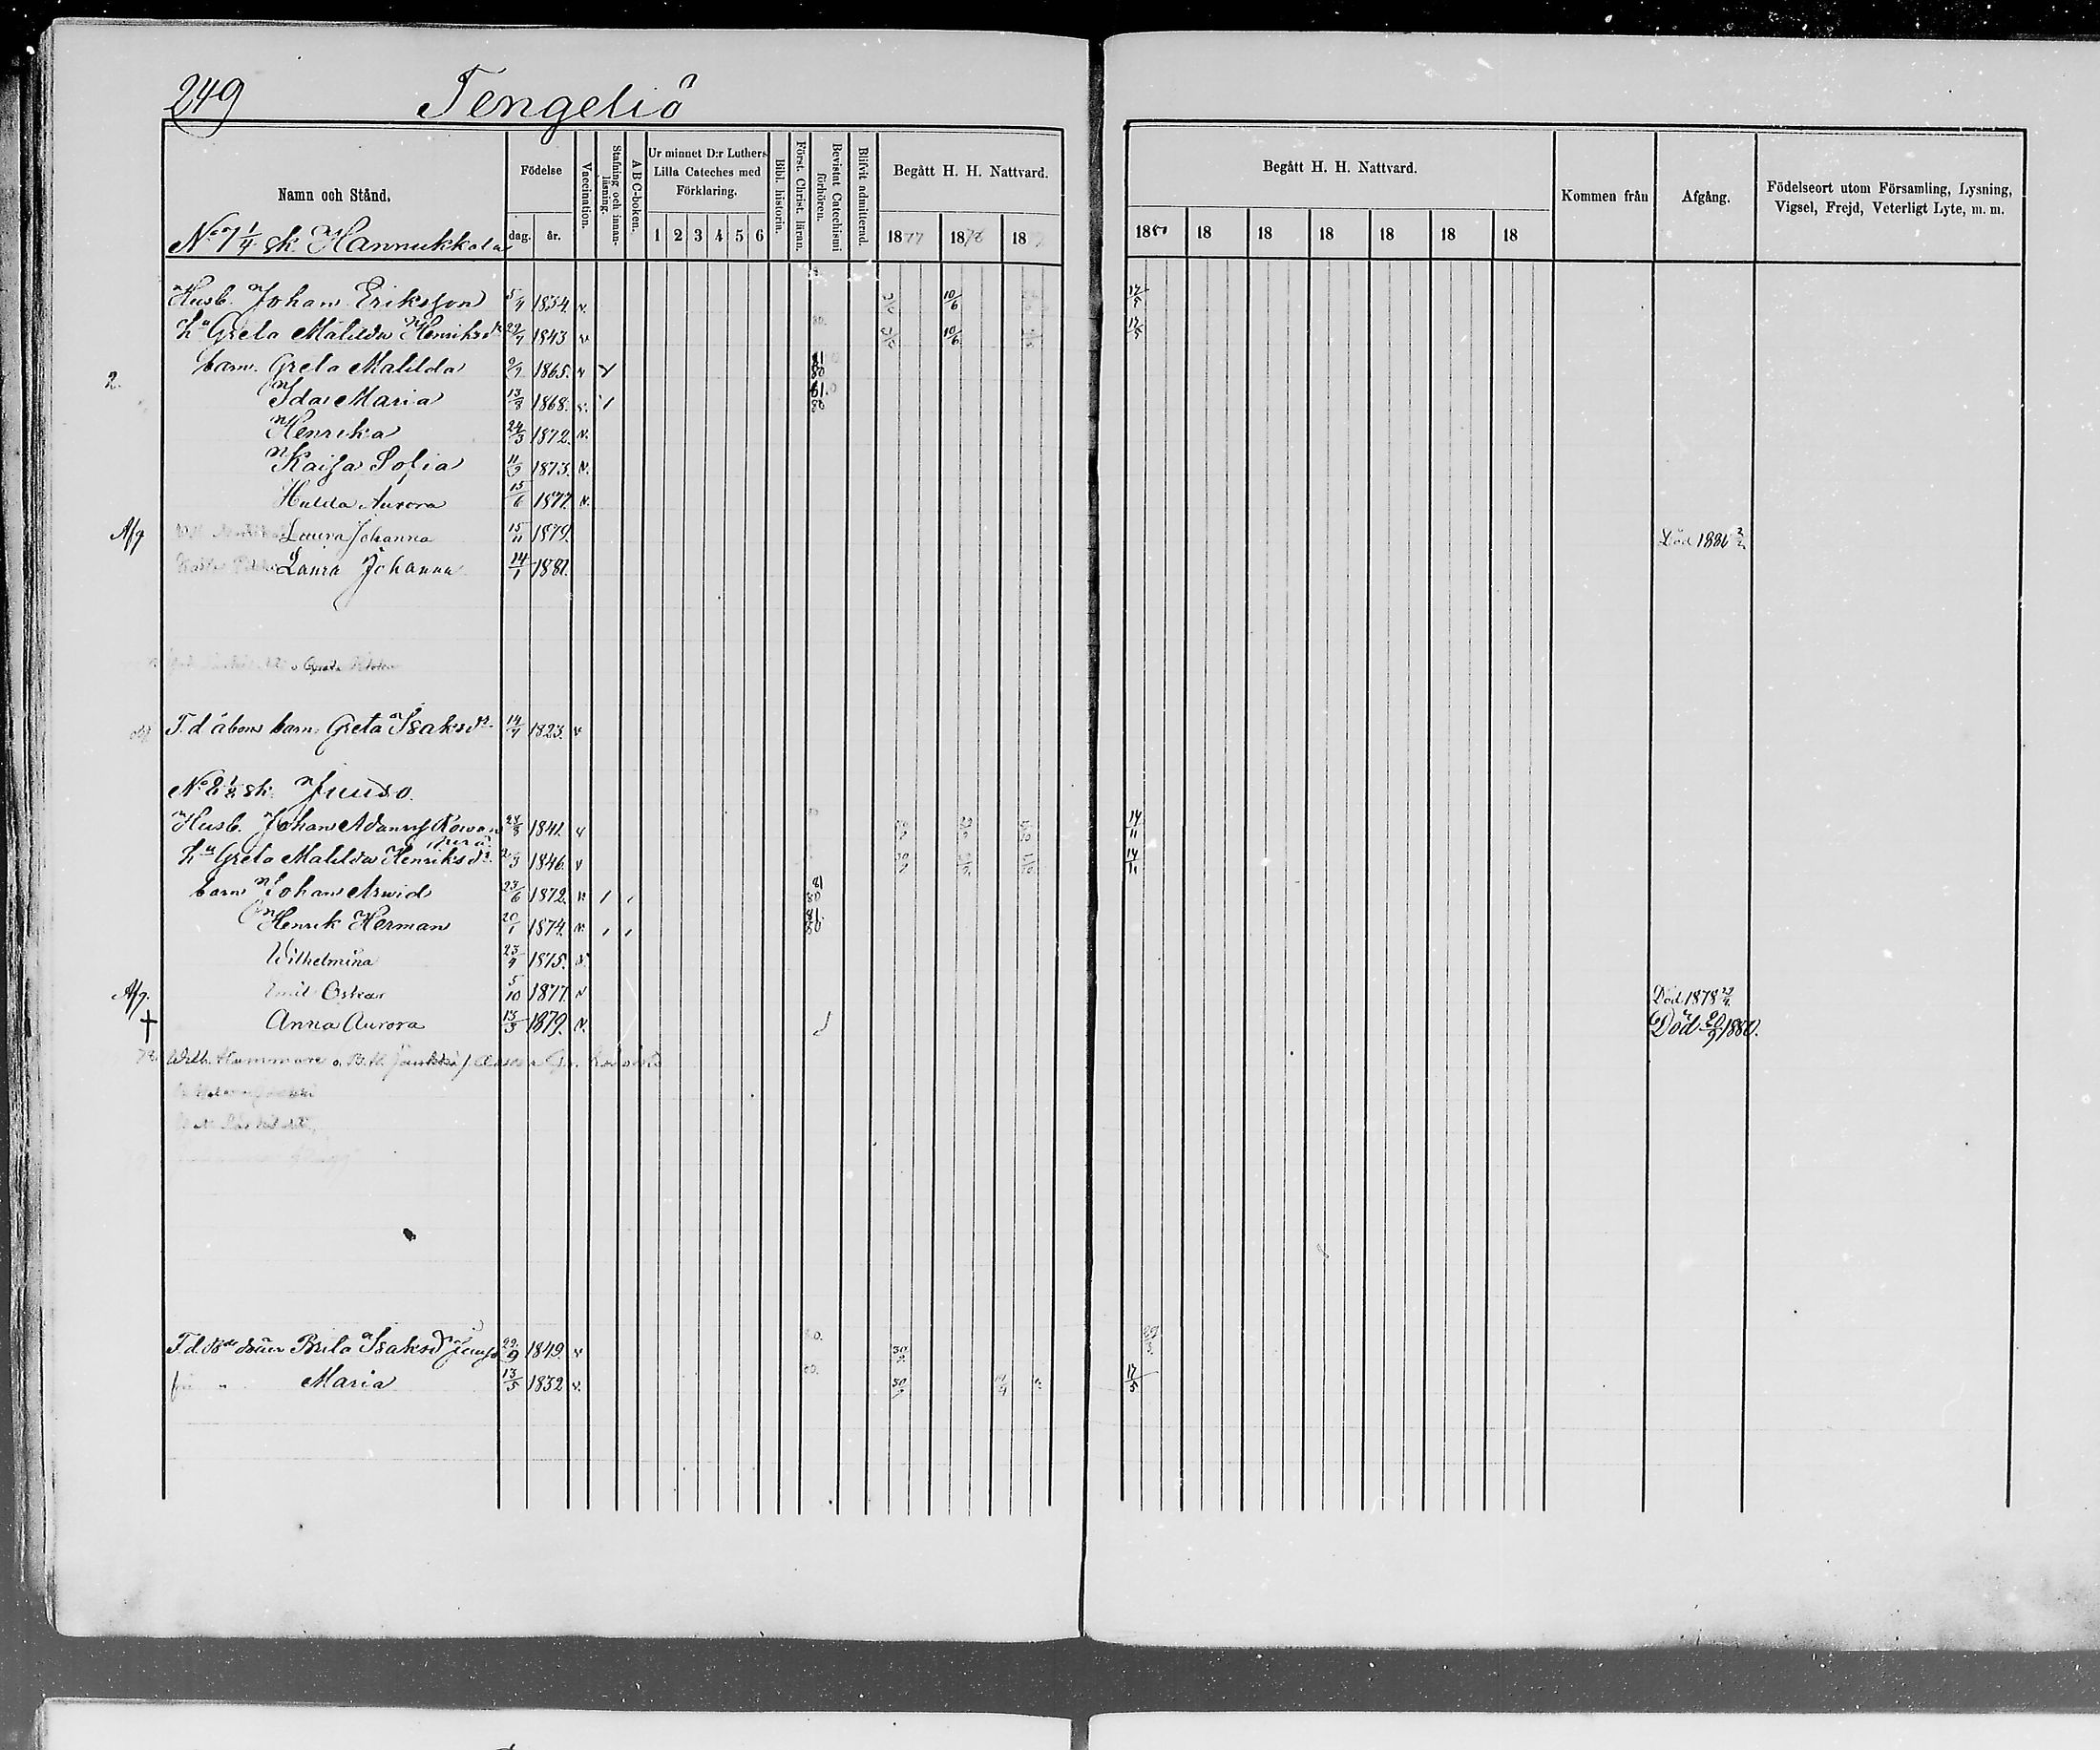 249 Tengeliö
Namn och Stånd.
Födelse
dag. år.
Vaccination.
Stafning och innanläsning.
A B C-boken.
Ur minnet D:r Luthers Lilla Cateches med Förklaring.
1 2 3 4 5 6
Bibl. historia.
Först. Christ. läran.
Bevistat Catechismi förhören.
Blifvit admitterad.
Begått H. H. Nattvard.
1877 1878 18
Begått H. H. Nattvard.
1880 18 18 18 18 18 18
Kommen från
Afgång.
Födelseort utom Församling, Lysning, Vigsel, Frejd, Veterligt Lyte, m. m.
No 7 1/4 sk. Hannukkala
Husb. Johan Eriksson 1834. v. 10/6 17/5
Greta Matilda Henriksdr 1843 v 10/6 17/5
barn Greta Matilda 1865. v 81 80
2. Ida Maria 13/8 1868. v. 81 80
Henrika 24/3 1872. v.
Kaisa Sofia 11/9 1873. v.
Hulda Aurora 15/6 1877. v.
Afg Laura Johanna 15/11 1879. Död 1880
Laura Johanna 14/1 1881.
Greta
T. d. åbons barn, Greta Isaksdr 14/7 1823. v
No 8 sk. Juuso.
Husb. Johan Adamss 1841. v 14/11
Hu Greta Matilda Henriksdr. 1846. v 14/11
barn Johan Arvid 23/6 1872. v 81 80
Henrik Herman 20/1 1874. v. 81 80
Wilhelmina 23/9 1875. v.
Afg. Emil Oskar 5/10 1877. v Död 1878
† Anna Aurora 13/3 1879. v. Död 20/9 1880.
Wilh. Hammare o. B. K.
Brita Isaksdr Juuso 22/9 1849. v 30/9
" Maria 13/5 1832 v. 30/9 17/5